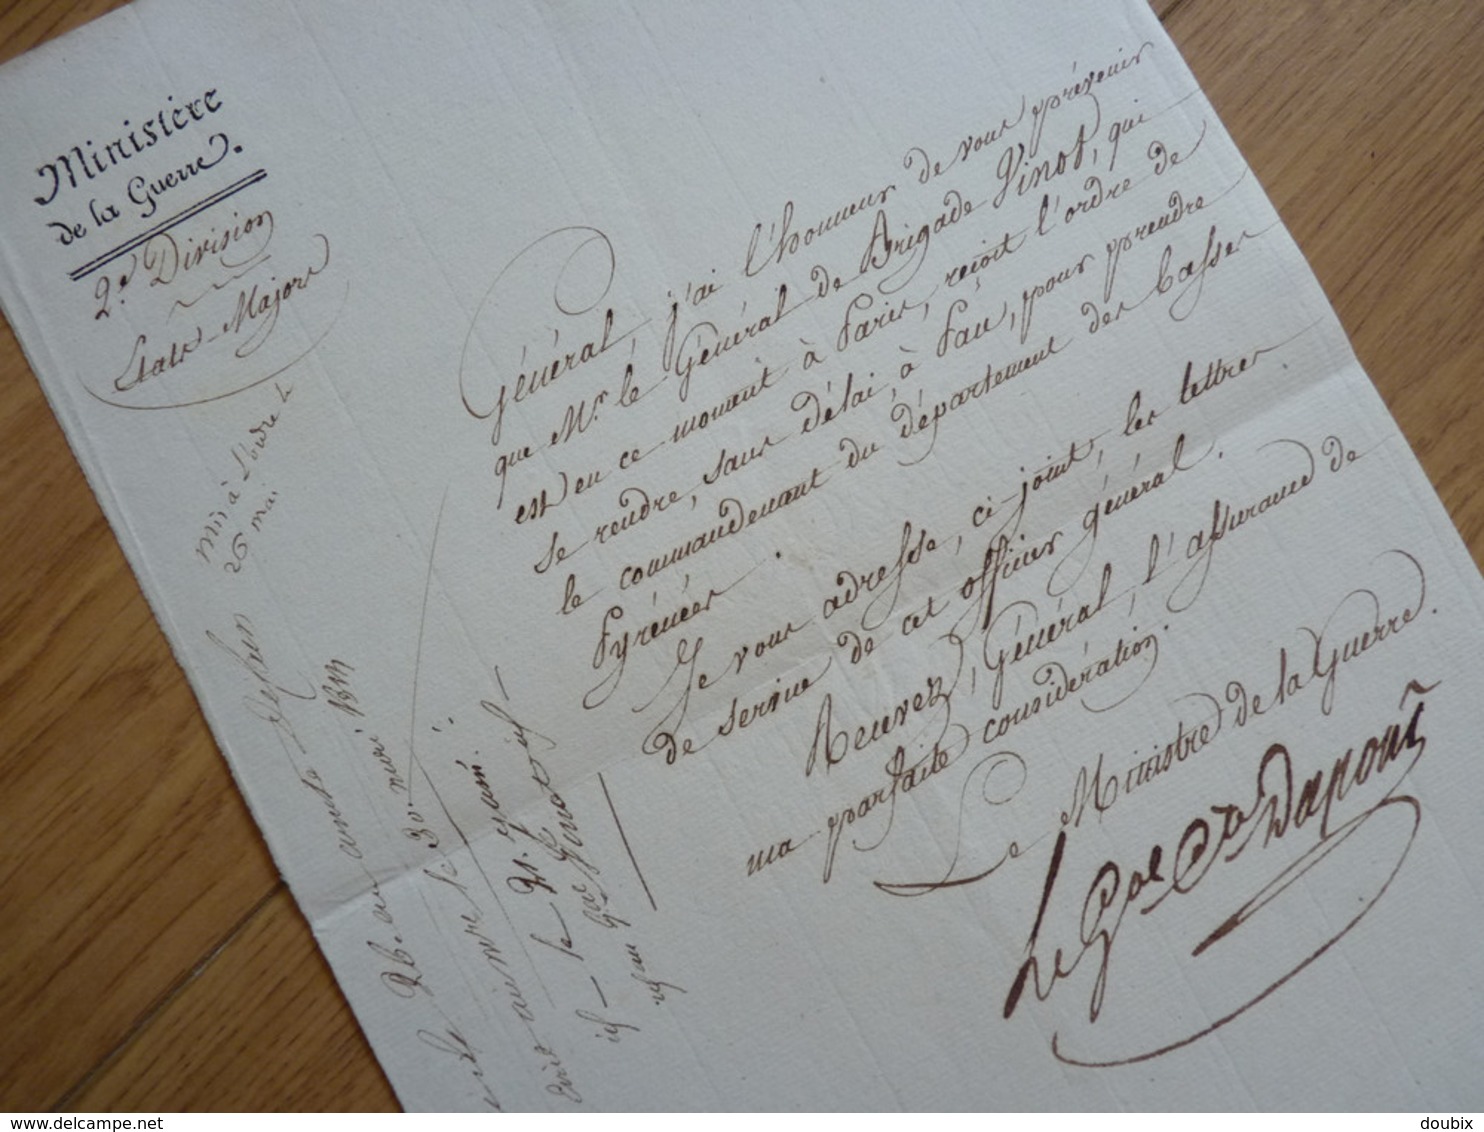 Ministère
de la Guerre.
2e. Division
États-Majors
Mis à l'ordre le
26 mai
Général, j'ai l'honneur de vous prévenir
que Mr. le Général de Brigade Vinot, qui
est en ce moment à Paris, reçoit l'ordre de
se rendre, sans délai, à Pau, pour prendre
le commandement du département des Basses
Pyrénées.
Je vous adresse, ci-joint, les lettres
de service de cet officier général.
Recevez, Général, l'assurance de
ma parfaite considération.
Le Ministre de la Guerre.
Le Gal Cte Dupont
le 30 mai 1814
le 31.
le Gal Vinot
www.delcampe.net
doubix